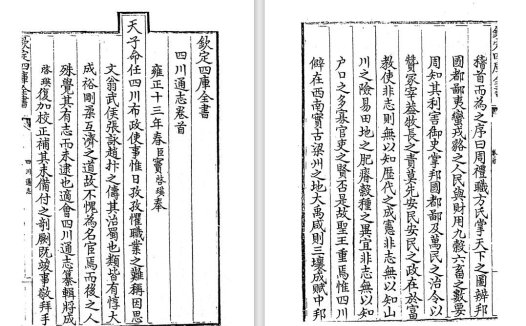 欽定四庫全書
四川通志卷首
雍正十三年春臣竇啓瑛奉
天子命任四川布政使事惟日孜孜懼職業之難稱因思
文翁武侯張詠趙抃之儔其治蜀也類皆有惇大
成裕剛柔互濟之道故不愧為名宦焉而後之人
殊覺其有志而未逮也適會四川通志纂輯將成
啓瑛復加校正補其未備付之剞劂既竣事敬拜手
欽定四庫全書
四川通志
欽定四庫全書
卷首
稽首而為之序曰周禮職方氏掌天下之圖辨邦
國都鄙夷蠻戎貉之人民與財用九穀六畜之數要
周知其利害御史掌邦國都鄙及萬民之治令以
贊冢宰蓋牧長之責莫先安民安民之政在於富
教使非志則無以知歷代之成憲非志無以知山
川之險易田地之肥瘠穀種之異宜非志無以知
户口之多寡官吏之賢否是故聖王重焉惟四川
僻在西南實古梁州之地大禹咸則三壤成賦中邦